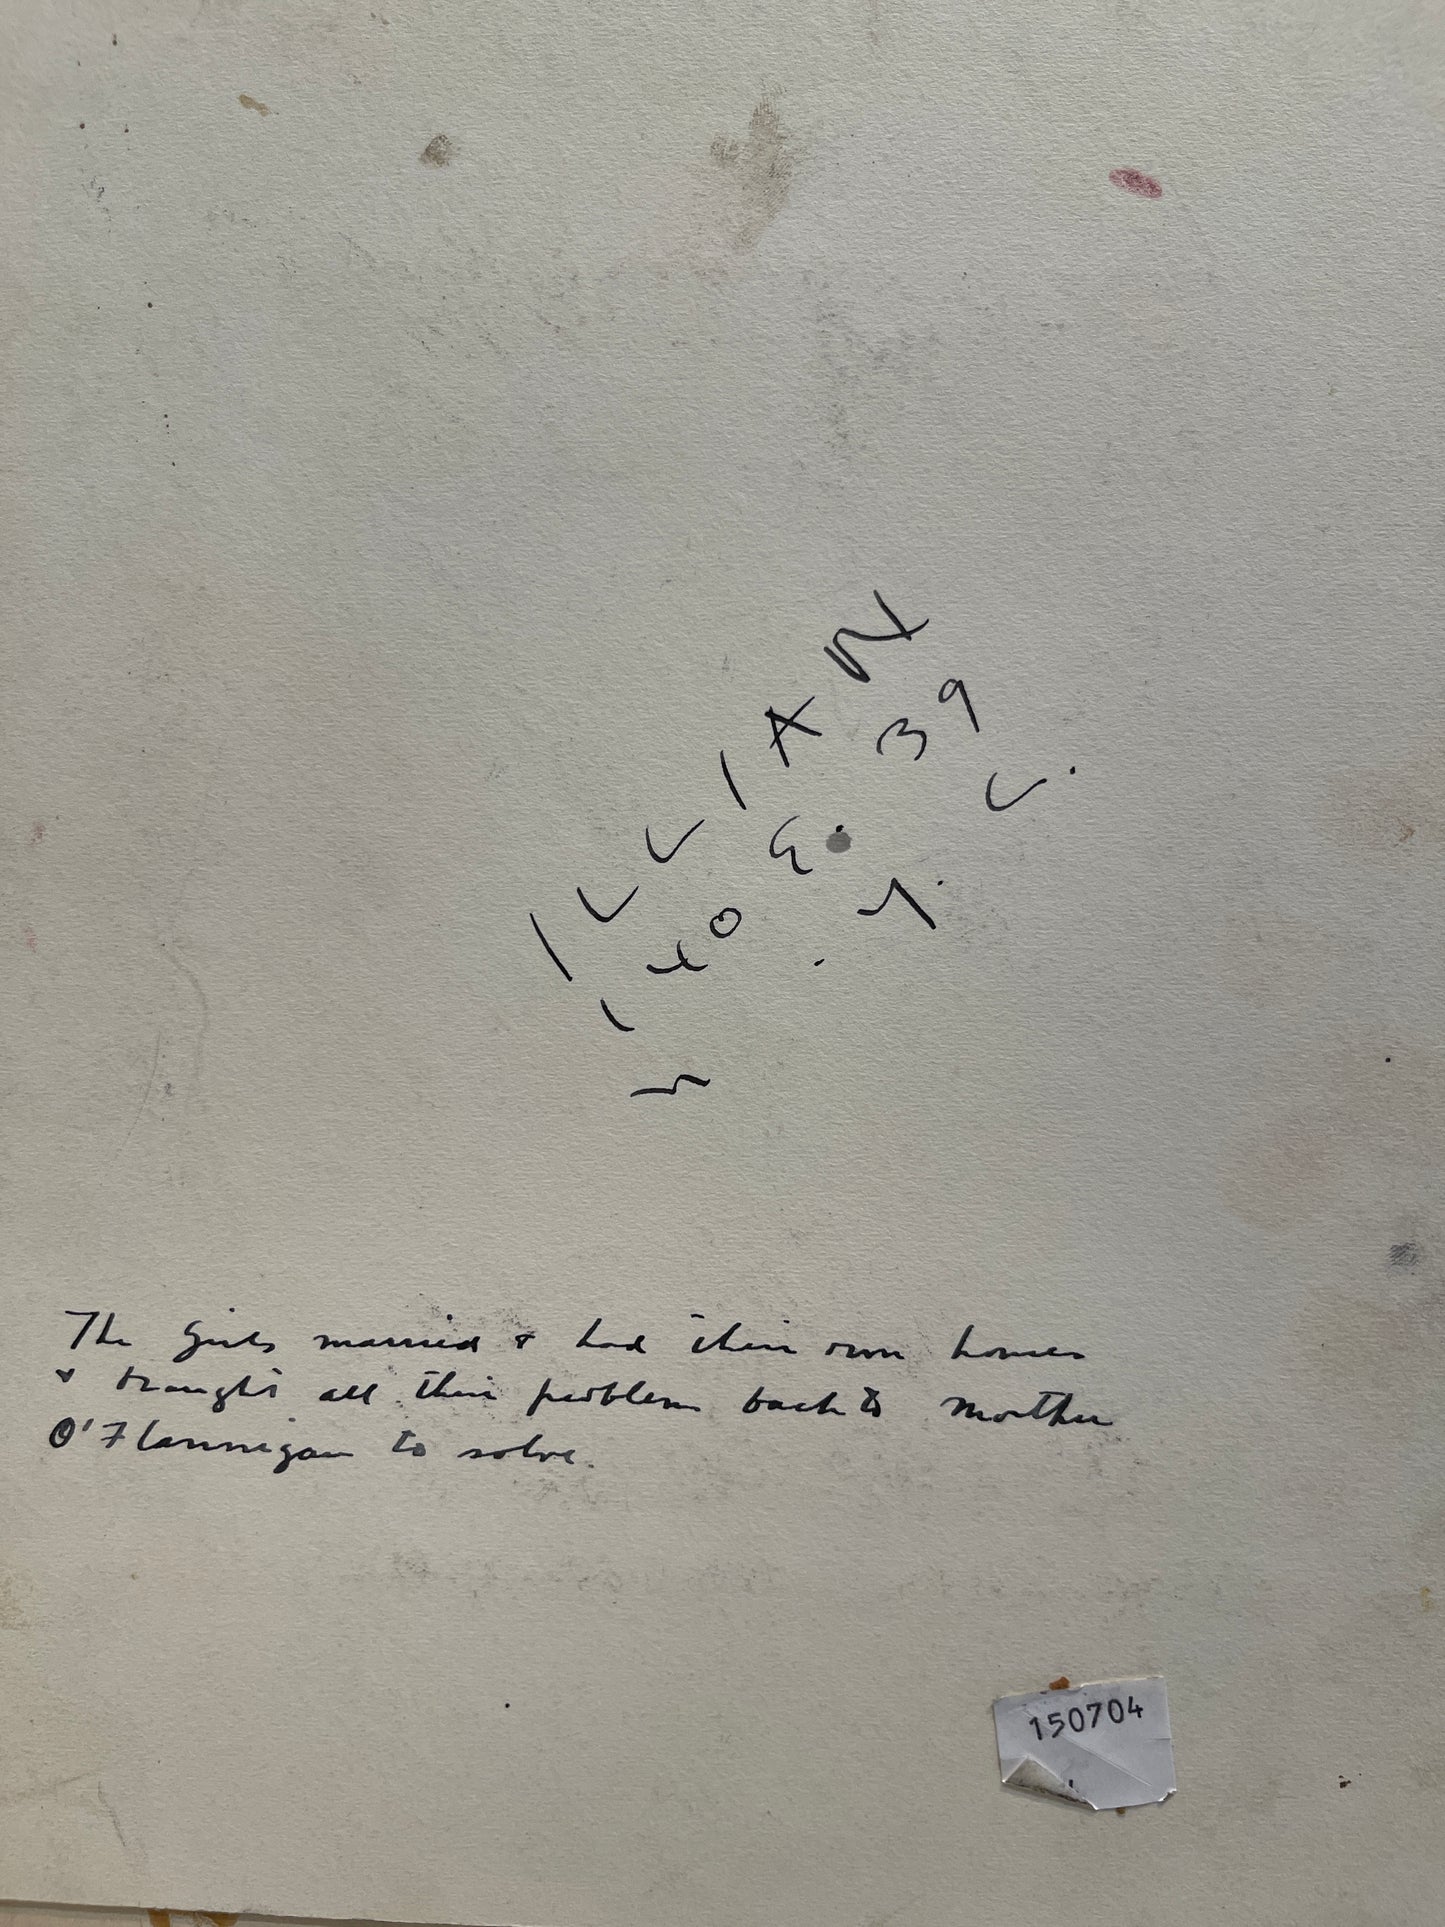 ILLIAN
140 E. 39
N. Y. C.
The Girls married & had their own homes
& brought all their problems back to Mother
O'Flannigan to solve.
150704